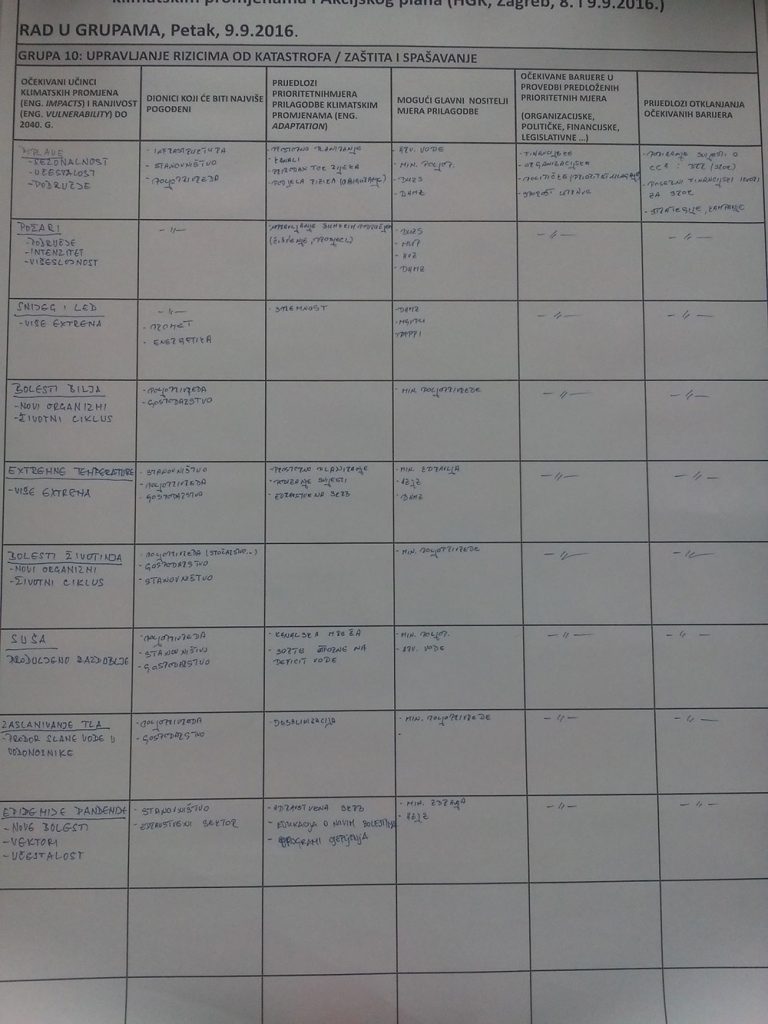 klimatskim promjenama i Akcijskog plana (HGK, Zagreb, 8. i 9.9.2016.)
RAD U GRUPAMA, Petak, 9.9.2016.
GRUPA 10: UPRAVLJANJE RIZICIMA OD KATASTROFA / ZAŠTITA I SPAŠAVANJE
OČEKIVANI UČINCI
KLIMATSKIH PROMJENA
(ENG. IMPACTS) I RANJIVOST
(ENG. VULNERABILITY) DO
2040. G.
DIONICI KOJI ĆE BITI NAJVIŠE
POGOĐENI
PRIJEDLOZI
PRIORITETNIHMJERA
PRILAGODBE KLIMATSKIM
PROMJENAMA (ENG.
ADAPTATION)
MOGUĆI GLAVNI NOSITELJI
MJERA PRILAGODBE
OČEKIVANE BARIJERE U
PROVEDBI PREDLOŽENIH
PRIORITETNIH MJERA
(ORGANIZACIJSKE,
POLITIČKE, FINANCIJSKE,
LEGISLATIVNE ...)
PRIJEDLOZI OTKLANJANJA
OČEKIVANIH BARIJERA
POPLAVE
- SEZONALNOST
- UČESTALOST
- PODRUČJE
- INFRASTRUKTURA
- STANOVNIŠTVO
- POLJOPRIVREDA
- PROSTORNO PLANIRANJE
- KANALI
- PODJELA RIZIKA
- HRV. VODE
- MIN. POLJOP.
- DUZS
- DHMZ
- FINANCIJSKE
- ORGANIZACIJSKE
- PODIZANJE SVIJESTI O
ZA
- STRATEGIJE, KAMPANJE
POŽARI
- PODRUČJE
- INTENZITET
- VIŠESLOJNOST
- // -
- DUZS
- MUP
- HVZ
- DHMZ
- // -
- // -
SNIJEG I LED
- VIŠE EXTREMA
- // -
- PROMET
- ENERGETIKA
- SPREMNOST
- DHMZ
- // -
- // -
BOLESTI BILJA
- NOVI ORGANIZMI
- ŽIVOTNI CIKLUS
- POLJOPRIVREDA
- GOSPODARSTVO
- MIN. POLJOPRIVREDE
- // -
- // -
EXTREMNE TEMPERATURE
- VIŠE EXTREMA
- STANOVNIŠTVO
- POLJOPRIVREDA
- GOSPODARSTVO
- PROSTORNO PLANIRANJE
- PODIZANJE SVIJESTI
- ZDRAVSTVENA SKRB
- MIN. ZDRAVLJA
- HZJZ
- DHMZ
- // -
- // -
BOLESTI ŽIVOTINJA
- NOVI ORGANIZMI
- ŽIVOTNI CIKLUS
- POLJOPRIVREDA (STOČARSTVO...)
- GOSPODARSTVO
- STANOVNIŠTVO
- MIN. POLJOPRIVREDE
- // -
- // -
SUŠA
PRODULJENO RAZDOBLJE
- POLJOPRIVREDA
- STANOVNIŠTVO
- GOSPODARSTVO
- KANALSKA MREŽA
- SORTE OTPORNE NA
DEFICIT VODE
- MIN. POLJOP.
- HRV. VODE
- // -
- // -
ZASLANIVANJE TLA
- PRODOR SLANE VODE U
VODONOSNIKE
- POLJOPRIVREDA
- GOSPODARSTVO
- DESALINIZACIJA
- MIN. POLJOPRIVREDE
-
- // -
- // -
EPIDEMIJE PANDEMIJE
- NOVE BOLESTI
- VEKTORI
- UČESTALOST
- STANOVNIŠTVO
- ZDRAVSTVENI SEKTOR
- ZDRAVSTVENA SKRB
- EDUKACIJA O NOVIM BOLESTIMA
- PROGRAMI CIJEPLJENJA
- MIN. ZDRAVLJA
- HZJZ
- // -
- // -